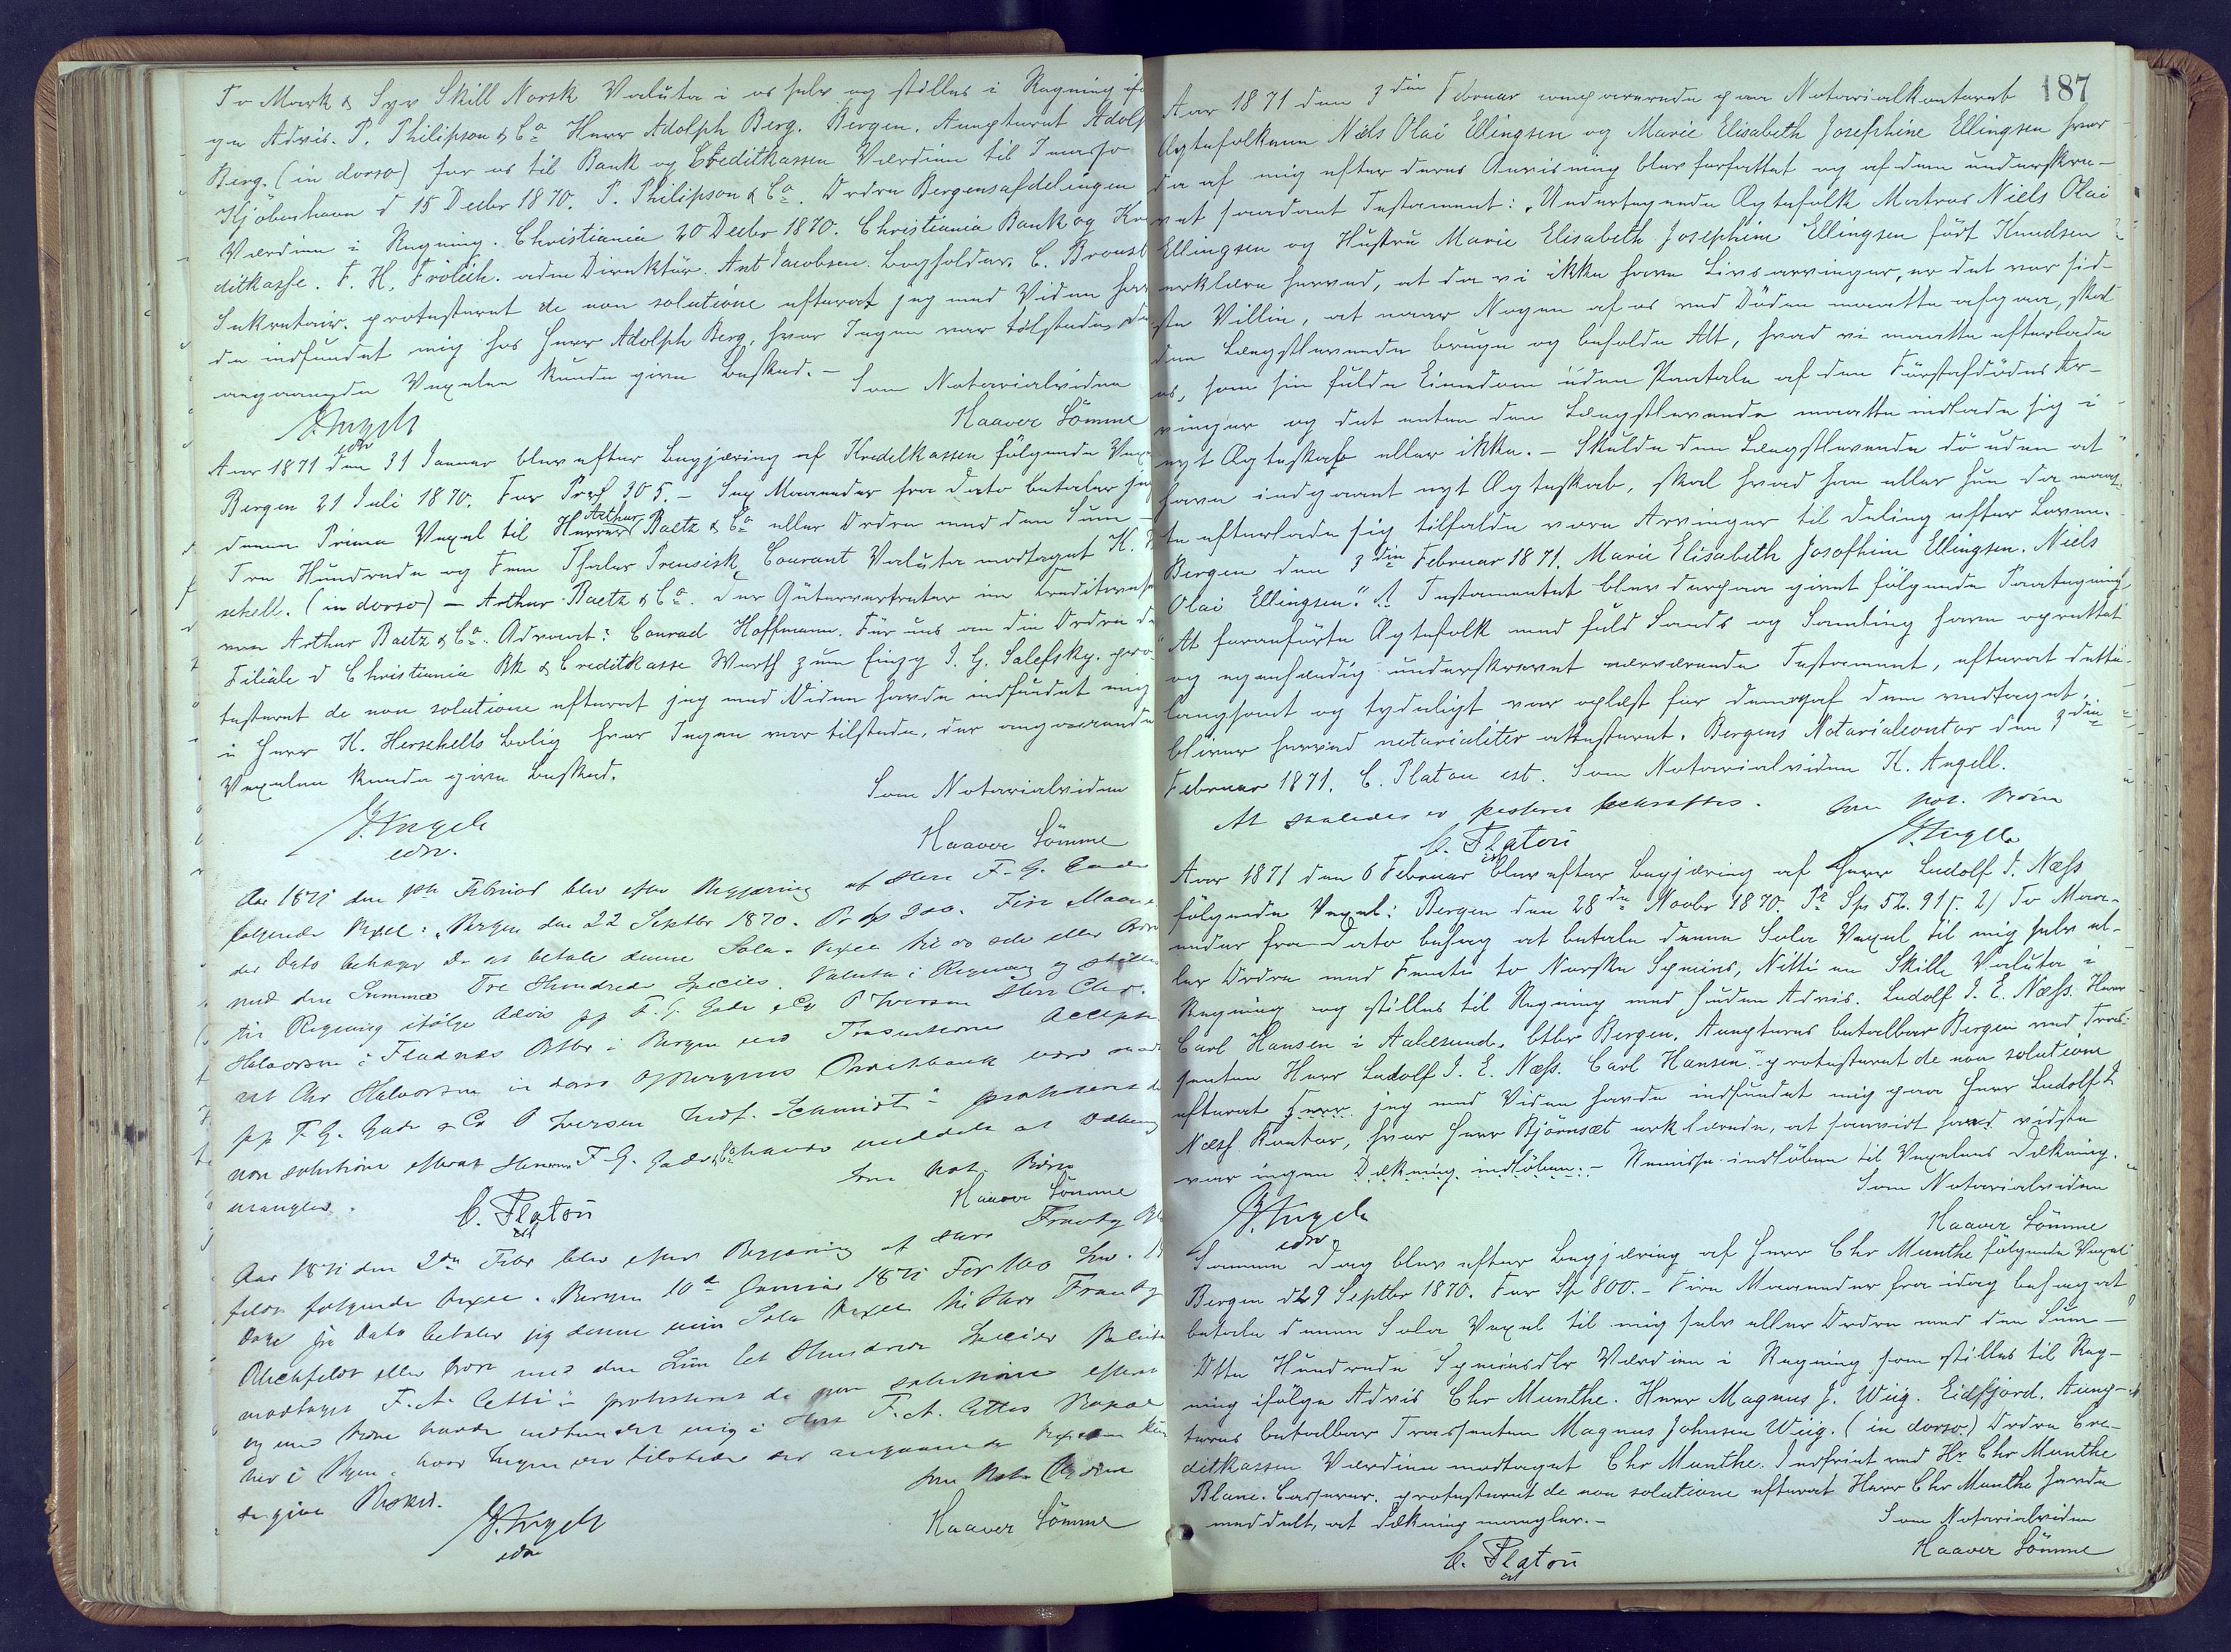 To Mark & Syv Skill Norsk Valuta i os selv og stilles i Regning
Advis. P. Philipson & Co Herr Adolph Berg. Bergen. Accepteret Adolf
Berg. (in dorso) for os til Bank og Creditkassen Værdien til Incasso
Kjöbenhavn d 15 Decbr 1870. P. Philipson & Co. Ordre Bergensafdelingen
Værdien i Regning. Christiania 20 Decbr 1870. Christiania Bank og Kre
ditkasse. F. H. Frölich. adm Direktör. Ant Jacobsen. Bogholder. C.
Sekretair. protesteret de non solutione efterat jeg med Viden hav
de indfundet mig hos Herr Adolph Berg, hvor Ingen var tilstede, der
angaaende Vexelen kunde give Besked. –
Som Notarialvidne
Haaver Sömme
Aar 1871 den 31 Januar blev efter Begjæring af Kreditkassen fölgende
Bergen 21 Juli 1870. For Pr 305. – Sex Maaneder fra dato betaler
denne Prima Vexel til Herrer Arthur Baetz & Co eller Ordre med den Sum
Tre Hundrede og Fem Thaler Preusisk Courant Valuta modtaget H.
schell. (in dorso) – Arthur Baetz & Co. der Güterverwalter im
von Arthur Baetz & Co. Advocat: Conrad Hoffmann. Für uns an die Ordre d
Filiale d Christiania Bk & Creditkasse Werth zum Einzg J. G. Salefsky. pro-
testeret de non solutione efterat jeg med Viden havde indfundet mig
i Herr H. Herschells bolig hvor Ingen var tilstede, der angaaende
Vexelen kunde give Besked.
Som Notarialvidne
Haaver Sömme
Aar 1871 den Februar blev efter Begjæring af Herr F. G. Gade
fölgende Vexel: Bergen den 22 Septbr 1870. 300. Fire Maane
der Dato behager De at betale denne Sola-Vexel til os selv eller Ordre
med den Summa Tre Hundrede Species. Valuta i Regning og stilles
til Regning ifölge Advis pp F. G. Gade & Co Iversen Herr Chr.
Halvorsen i Bergen Accepte
ret Chr Halvorsen in dorso Bergens Privatbank
pp F. G. Gade & Co Iversen Schmidt: protesteret de
non solutione efterat Herrer F. G. Gade & Co havde meddelt at Dækning
mangler.
Som Not. Vidne
C. Platou
Haaver Sömme
Aar 1871 den 2den Febr blev efter Begjæring af Herr
feldt fölgende Vexel. Bergen 10de Januar 1871 For 100
Dage fra Dato betaler jeg denne min Sola Vexel til Herr
eller Ordre med den Sum Et Hundrede Species Valuta
modtaget F. A. Cetti protesteret de non solutione efterat
jeg med Vidne havde indfundet mig i Herr F. A. Cettis
her i Byen, hvor Ingen var tilstede der angaaende Vexelen kun
de give Besked.
Som Not. Vidne
Haaver Sömme
187
Aar 1871 den 3die Februar comparerede paa Notarialkontoret
Ægtefolkene Niels Olai Ellingsen og Marie Elisabeth Josephine Ellingsen hvor
da af mig efter deres Anvisning blev forfattet og af dem underskre-
vet saadant Testament: "Undertegnede Ægtefolk Matros Niels Olai
Ellingsen og Hustru Marie Elisabeth Josephine Ellingsen födt Knudsen
erklære herved, at da vi ikke have Livsarvinger, er det vor sid-
ste Villie, at naar Nogen af os ved Döden maatte afgaa, skal
den Længstlevende bruge og beholde Alt, hvad vi maatte efterlade
os, som sin fulde Eiendom uden Paatale af den Förstafdödes Ar-
vinger og det enten den Længstlevende maatte indlade sig i
nyt Ægteskab eller ikke. – Skulde den Længstlevende dö uden at
have indgaaet nyt Ægteskab, skal hvad han eller hun da maat-
te efterlade sig tilfalde vore Arvinger til Deling efter Loven.
Bergen den 3die Februar 1871. Marie Elisabeth Josephine Ellingsen. Niels
Olai Ellingsen." Testamentet blev derpaa givet fölgende Paategning
"At foranförte Ægtefolk med fuld Sands og Samling have oprettet
og egenhændig underskrevet nærværende Testament, efterat dette
langsomt og tydeligt var oplæst for dem og af dem vedtaget,
bliver herved notarialiter attesteret. Bergens Notarialcontor den 3die
Februar 1871. C. Platou cst. Som Notarialvidne K. Angell.
At saaledes er passeret bekræftes. Som Not. Vidne
C. Platou
cst
Aar 1871 den 6 Februar blev efter Begjæring af Herr Ludolf J. Næss
fölgende Vexel: Bergen den 28de Novbr 1870. Pr Sp 52. 91 s. 2/ To Maa-
neder fra Dato behag at betale denne Sola Vexel til mig selv el-
ler Ordre med Femti to Norske Species, Nitti en Skill Valuta i
Regning og stilles til Regning med Huden Advis. Ludolf J. E. Næss. Herr
Carl Hansen i Aalesund. btlbr Bergen. Accepteres betalbar Bergen ved Tras-
senten Herr Ludolf J. E. Næss. Carl Hansen" protesteret de non solutione
efterat Herr jeg med Viden havde indfundet mig paa Herr Ludolf J
Næss Kontor, hvor Herr Björnsæt erklærede, at saavidt han vidste
var ingen Dækning indlöben. – Remisse indlöben til Vexelens Dækning.
Som Notarialvidne
Haaver Sömme
Samme Dag blev efter Begjæring af Herr Chr Munthe fölgende Vexel
Bergen d 29 Septbr 1870. For Sp 800. – Fire Maaneder fra idag behag at
betale denne Sola Vexel til mig selv eller Ordre med den Sum –
Otte Hundrede Speciesdlr Værdien i Regning som stilles til Reg-
ning ifölge Advis Chr Munthe. Herr Magnus J. Wiig. Eidfjord. Accep-
teres betalbar Trassenten Magnus Johnsen Wiig. (in dorso) Ordre Cre-
ditkassen Værdien modtaget Chr Munthe. Indfriet ved Hr Chr Munthe
Blanc. Casserer. protesteret de non solutione efterat Herr Chr Munthe havde
meddelt, at Dækning mangler. –
Som Notarialvidne
C. Platou
cst
Haaver Sömme